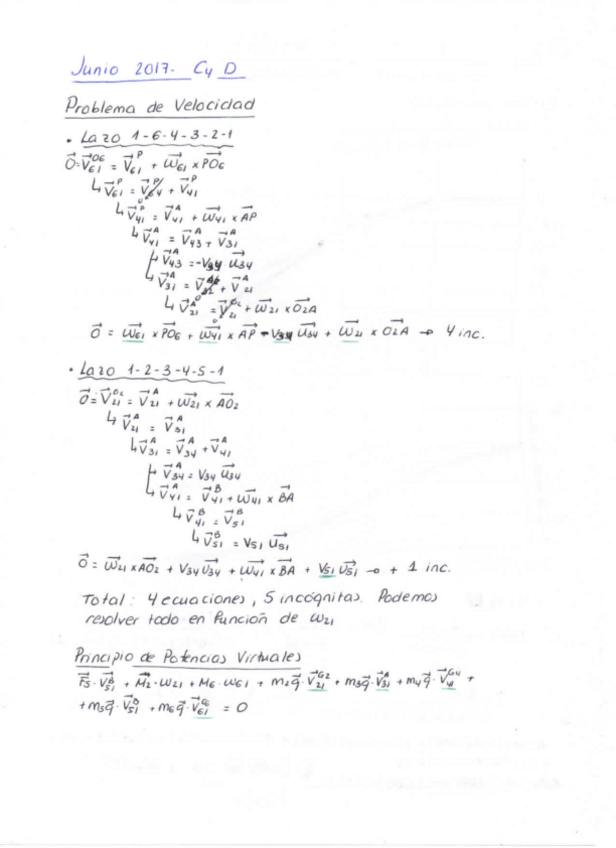 Junio 2017. C y D
Problema de Velocidad
• Lazo 1-6-4-3-2-1
O⃗ = V⃗₆₁^O6 = V⃗₆₁^P + ω⃗₆₁ × PO⃗₆
↳ V⃗₆₁^P = V⃗₆₄^P + V⃗₄₁^P
↳ V⃗₄₁^P = V⃗₄₁^A + ω⃗₄₁ × AP⃗
↳ V⃗₄₁^A = V⃗₄₃^A + V⃗₃₁^A
↳ V⃗₄₃^A = -V₃₄ u⃗₃₄
↳ V⃗₃₁^A = V⃗₃₂^A + V⃗₂₁^A
↳ V⃗₂₁^A = V⃗₂₁^O2 + ω⃗₂₁ × O₂A⃗
O⃗ = ω⃗₆₁ × PO⃗₆ + ω⃗₄₁ × AP⃗ - V₃₄ u⃗₃₄ + ω⃗₂₁ × O₂A⃗ → 4 inc.
• Lazo 1-2-3-4-5-1
O⃗ = V⃗₂₁^O2 = V⃗₂₁^A + ω⃗₂₁ × AO⃗₂
↳ V⃗₂₁^A = V⃗₃₁^A
↳ V⃗₃₁^A = V⃗₃₄^A + V⃗₄₁^A
↳ V⃗₃₄^A = V₃₄ u⃗₃₄
↳ V⃗₄₁^A = V⃗₄₁^B + ω⃗₄₁ × BA⃗
↳ V⃗₄₁^B = V⃗₅₁^B
↳ V⃗₅₁^B = V₅₁ u⃗₅₁
O⃗ = ω⃗₂₁ × AO⃗₂ + V₃₄ u⃗₃₄ + ω⃗₄₁ × BA⃗ + V₅₁ u⃗₅₁ → + 1 inc.
Total: 4 ecuaciones, 5 incógnitas. Podemos
resolver todo en función de ω₂₁
Principio de Potencias Virtuales
F⃗₅·V⃗₅₁^B + M⃗₂·ω₂₁ + M₆·ω₆₁ + m₂g⃗·V⃗₂₁^G2 + m₃g⃗·V⃗₃₁^A + m₄g⃗·V⃗₄₁^G4 +
+ m₅g⃗·V⃗₅₁^B + m₆g⃗·V⃗₆₁^G6 = 0